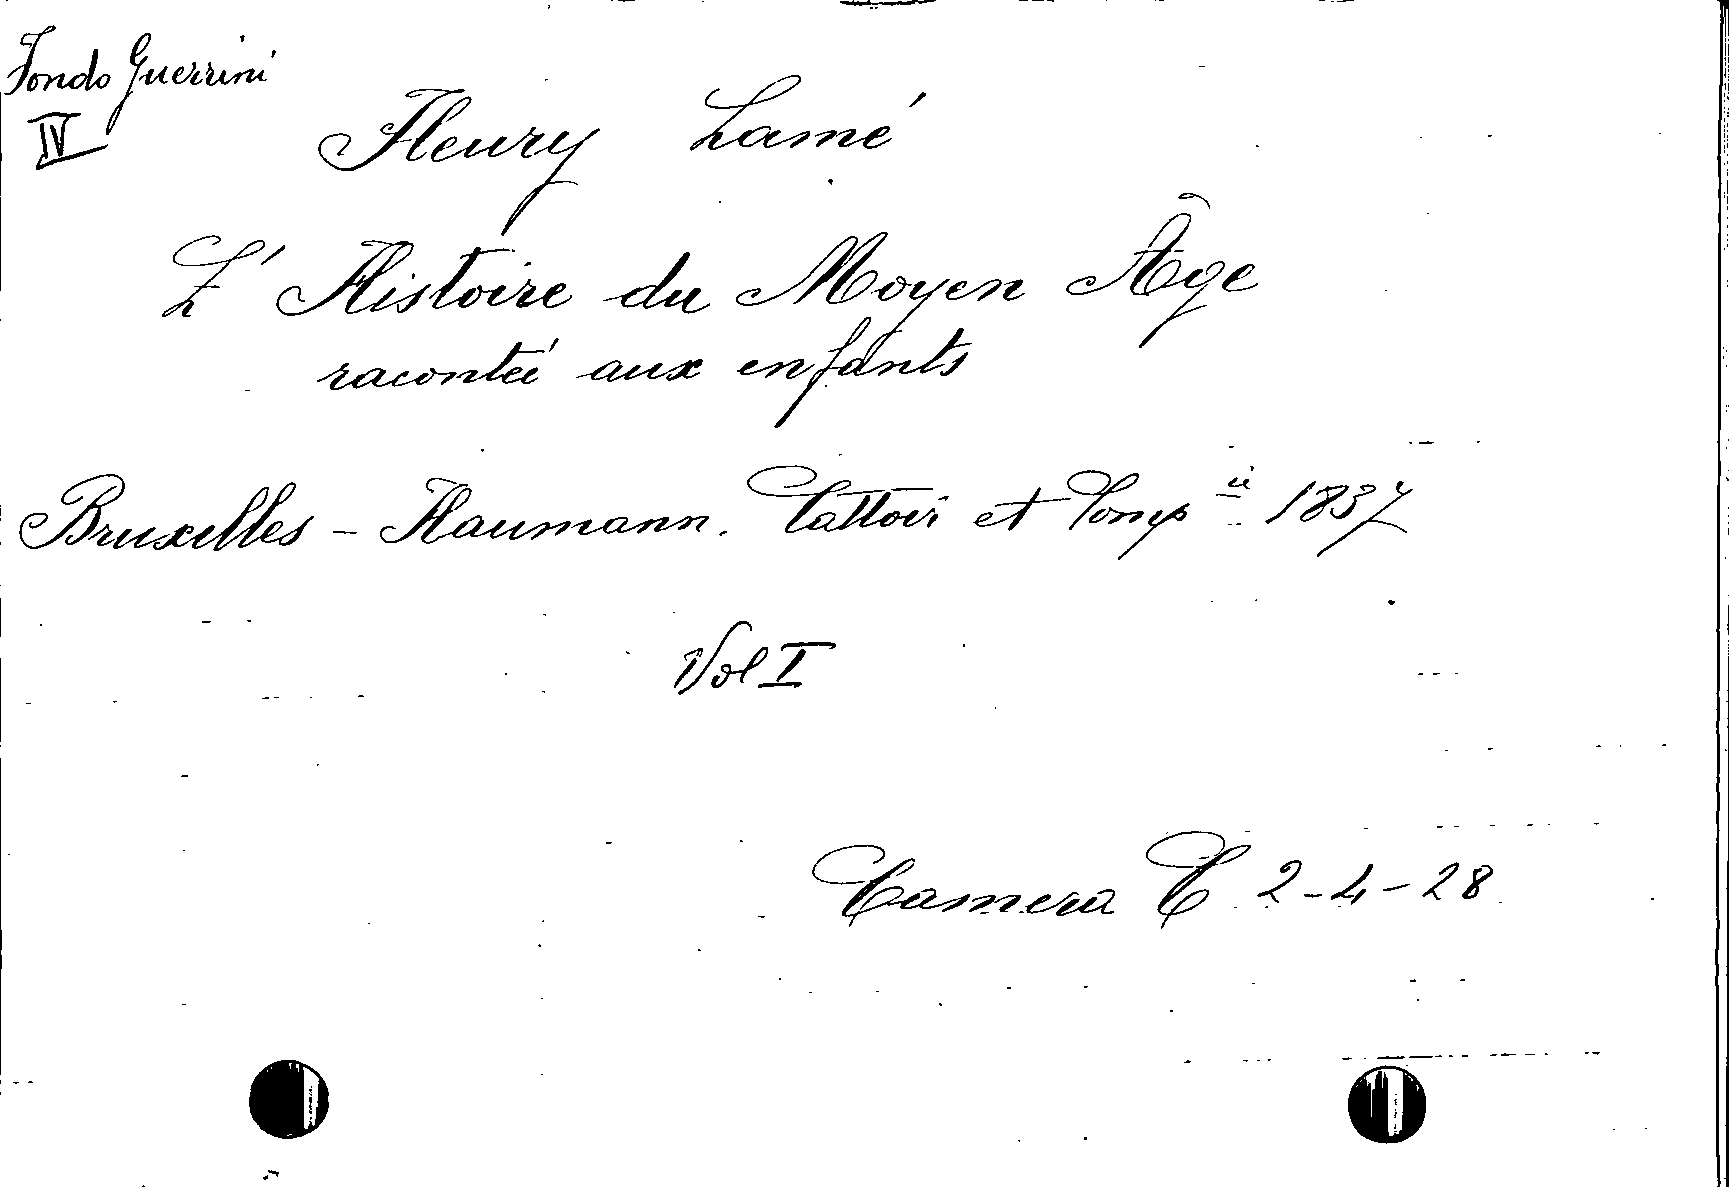 Fondo Guerrini
IV
Fleury Lamé
L'Histoire du Moyen Âge
racontée aux enfants
Bruxelles - Haumann. Cattoir et Comp ie 1837
Vol I
Camera C 2-4-28